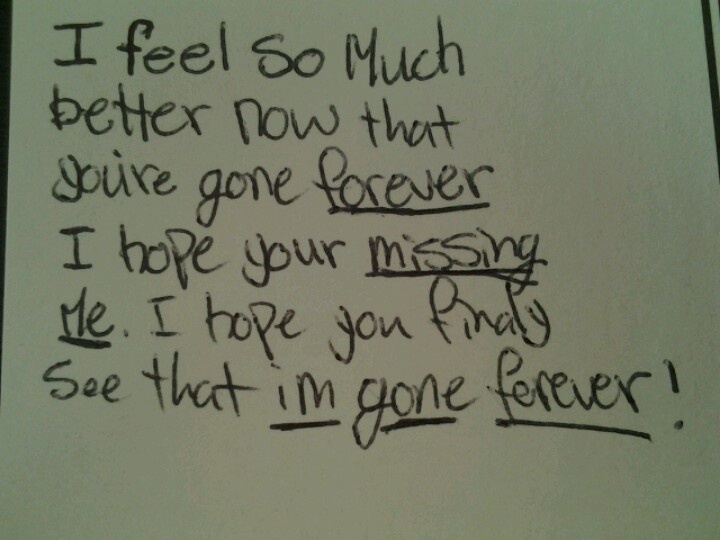 I feel so Much
better now that
you're gone forever
I hope your missing
Me. I hope you finaly
See that im gone forever!